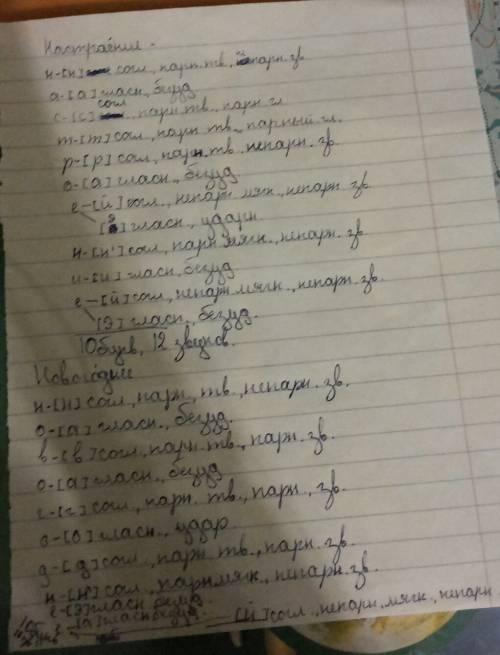 Настраение -
н-[н] согл., парн. тв., непарн. зв.
а-[а] гласн., безуд
с-[с] согл., парн. тв., парн. гл
т-[т] согл., парн. тв., парный гл.
р-[р] согл., парн. тв. непарн. зв.
о-[а] гласн., безуд.
е-[й] согл., непарн. мягк., непарн. зв.
[э] гласн., ударн.
н-[н'] согл., парн. мягк., непарн. зв.
и-[и] гласн., безуд.
е-[й] согл., непарн. мягк., непарн. зв.
[э] гласн., безуд.
10 букв, 12 звуков.
Новогоднее
н-[н] согл., парн., тв., непарн. зв.
о-[а] гласн., безуд.
в-[в] согл., парн. тв., парн. зв.
о-[а] гласн., безуд
г-[г] согл., парн. тв., парн., зв.
о-[о] гласн., удар
д-[д] согл., парн. тв., парн. зв.
н-[н'] согл., парн. мягк., непарн. зв.
е-[э] гласн. безуд.
[й] согл., непарн., мягк., непарн